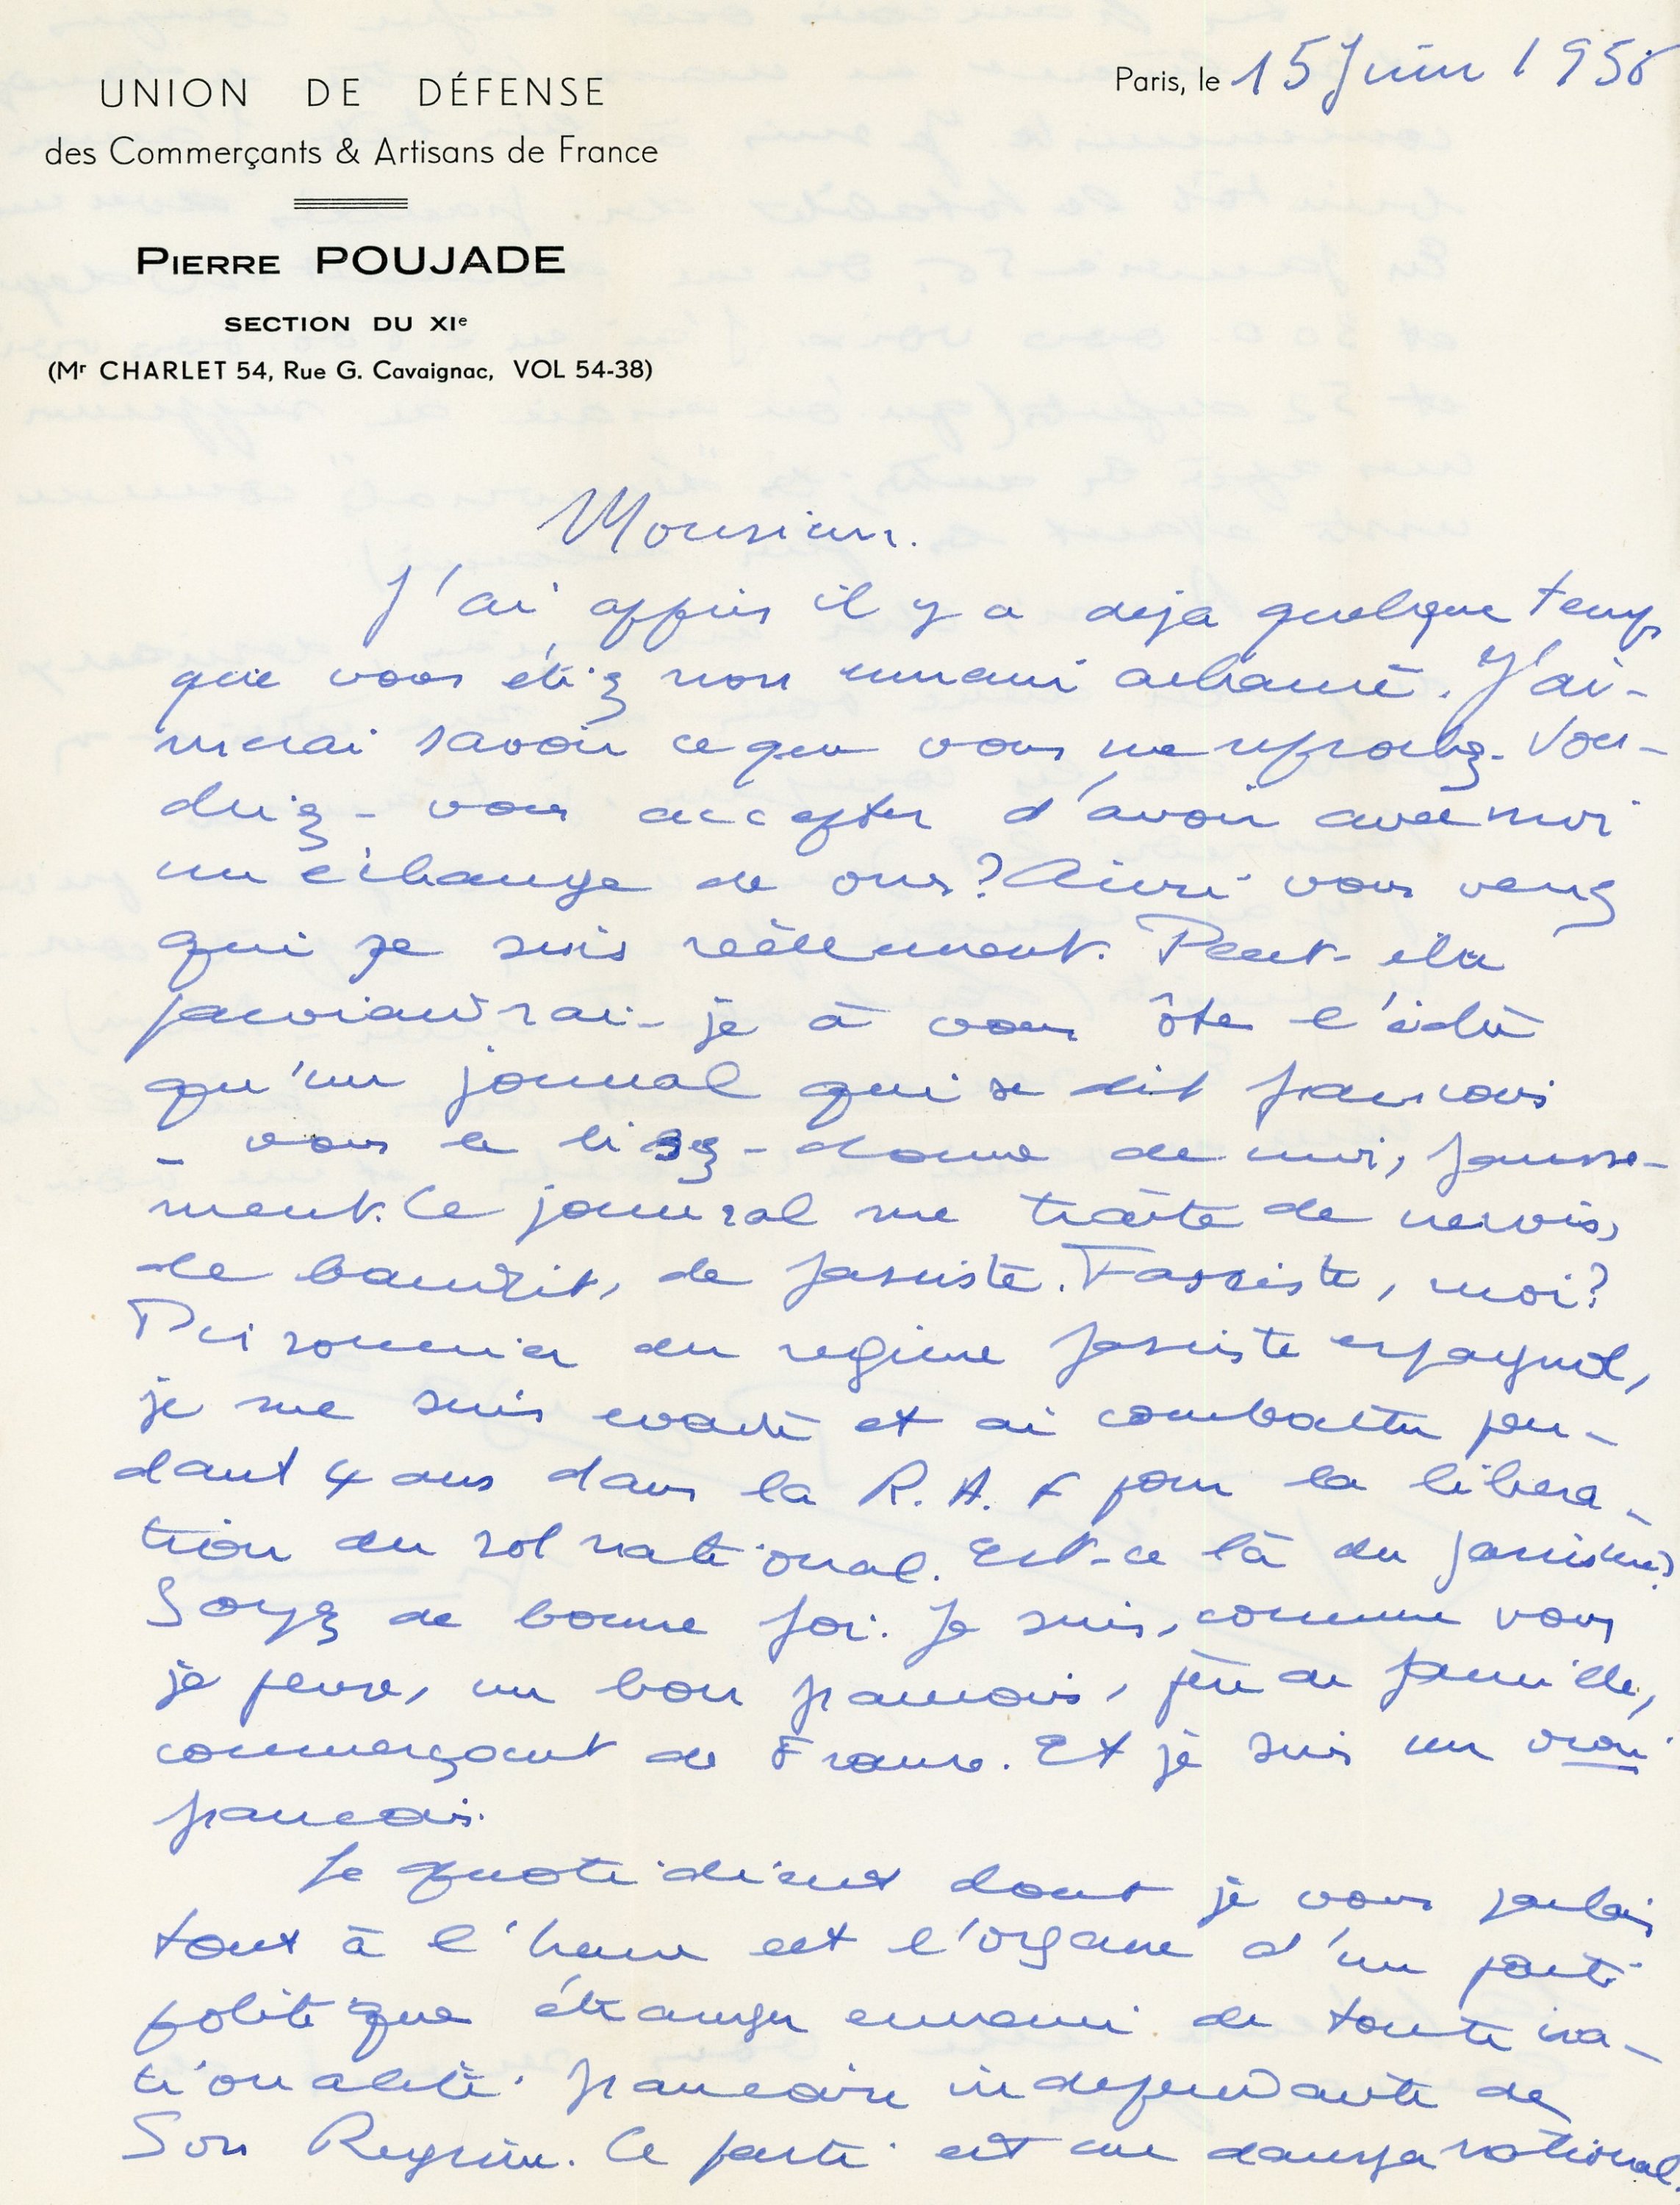 UNION DE DÉFENSE
des Commerçants & Artisans de France
PIERRE POUJADE
SECTION DU XIe
(Mr CHARLET 54, Rue G. Cavaignac, VOL 54-38)
Paris, le 15 Juin 1956
Monsieur.
J'ai appris il y a deja quelque temps
que vous étiez mon ennemi acharné. J'ai-
merai savoir ce que vous me reprochez. Vou-
driez-vous accepter d'avoir avec moi
un échange de vues? Ainsi vous verrez
qui je suis réellement. Peut-etre
parviendrai-je à vous ôter l'idée
qu'un journal qui se dit francais
- vous le lisez - donne de moi, fausse-
ment. Ce journal me traite de nervis,
de bandit, de fasciste. Fasciste, moi?
Prisonnier du regime fasciste espagnol,
je me suis evadé et ai combattu pen-
dant 4 ans dans la R.A.F pour la libera-
tion du sol national. Est-ce là du fascisme?
Soyez de bonne foi. Je suis, comme vous
je pense, un bon francais, père de famille,
commerçant de France. Et je suis un vrai
francais.
Le quotidient dont je vous parlais
tout à l'heure est l'organe d'un parti
politique étranger ennemi de toute na-
tionalité francaise independante de
Son Regime. Ce parti est un danger national.